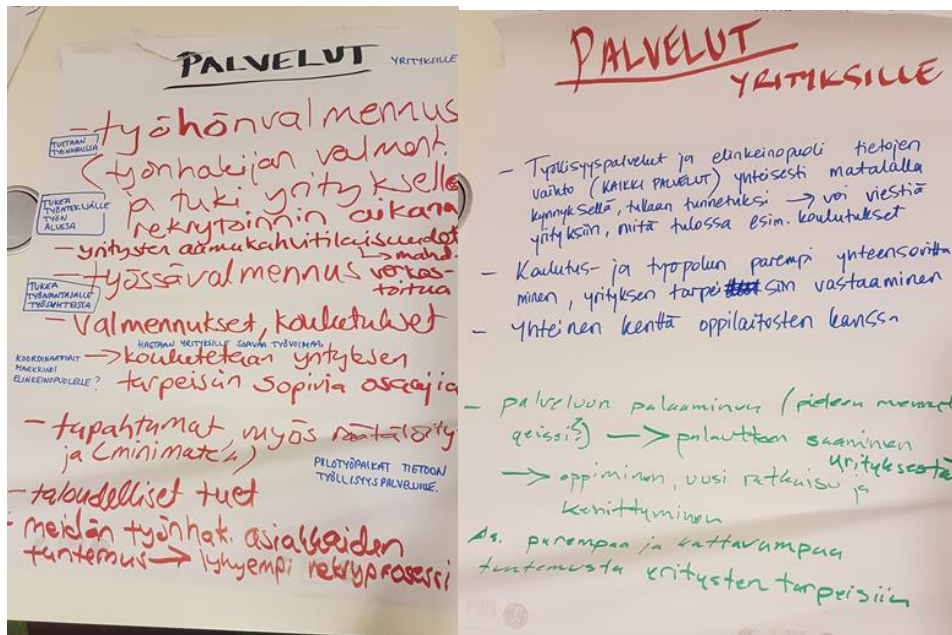 PALVELUT YRITYKSILLE
- työhönvalmennus
TUETAAN
TYÖNHAUSSA
(työnhakijan valment.
ja tuki yritykselle
rekrytoinnin aikana
TUKEA
TYÖNTEKIJÄLLE
TYÖN
ALUSSA
- yritysten aamukahvitilaisuudet
↳ mahd.
- työssävalmennus verkos-
toitua
TUKEA
TYÖNANTAJALLE
TYÖSUHTEISSA
- valmennukset, koulutukset
HAETAAN YRITYKSILLE SOPIVAA TYÖVOIMAA.
→ koulutetaan yrityksen
tarpeisiin sopivia osaajia
KOORDINAATTORIT
MARKKINOI
ELINKEINOPUOLELLE?
- tapahtumat, myös räätälöity
ja (minimatch)
PIILOTYÖPAIKAT TIETOON
TYÖLLISYYSPALVELUILLE.
- taloudelliset tuet
- meidän työnhak. asiakkaiden
tuntemus → lyhyempi rekryprosessi
PALVELUT
YRITYKSILLE
- Työllisyyspalvelut ja elinkeinopuoli tietojen
vaihto (KAIKKI PALVELUT) yhteisesti matalalla
kynnyksellä, tullaan tunnetuksi → voi viestiä
yrityksiin, mitä tulossa esim. koulutukset
- Koulutus- ja työpolun parempi yhteensovitta
minen, yrityksen tarpeisiin vastaaminen
- yhteinen kenttä oppilaitosten kanssa
- palveluun palaaminen (pieleen menneet
keissit) → palautteen saaminen
yrityksestä
→ oppiminen, uusi ratkaisu ja
kehittyminen
As. parempaa ja kattavampaa
tuntemusta yritysten tarpeisiin